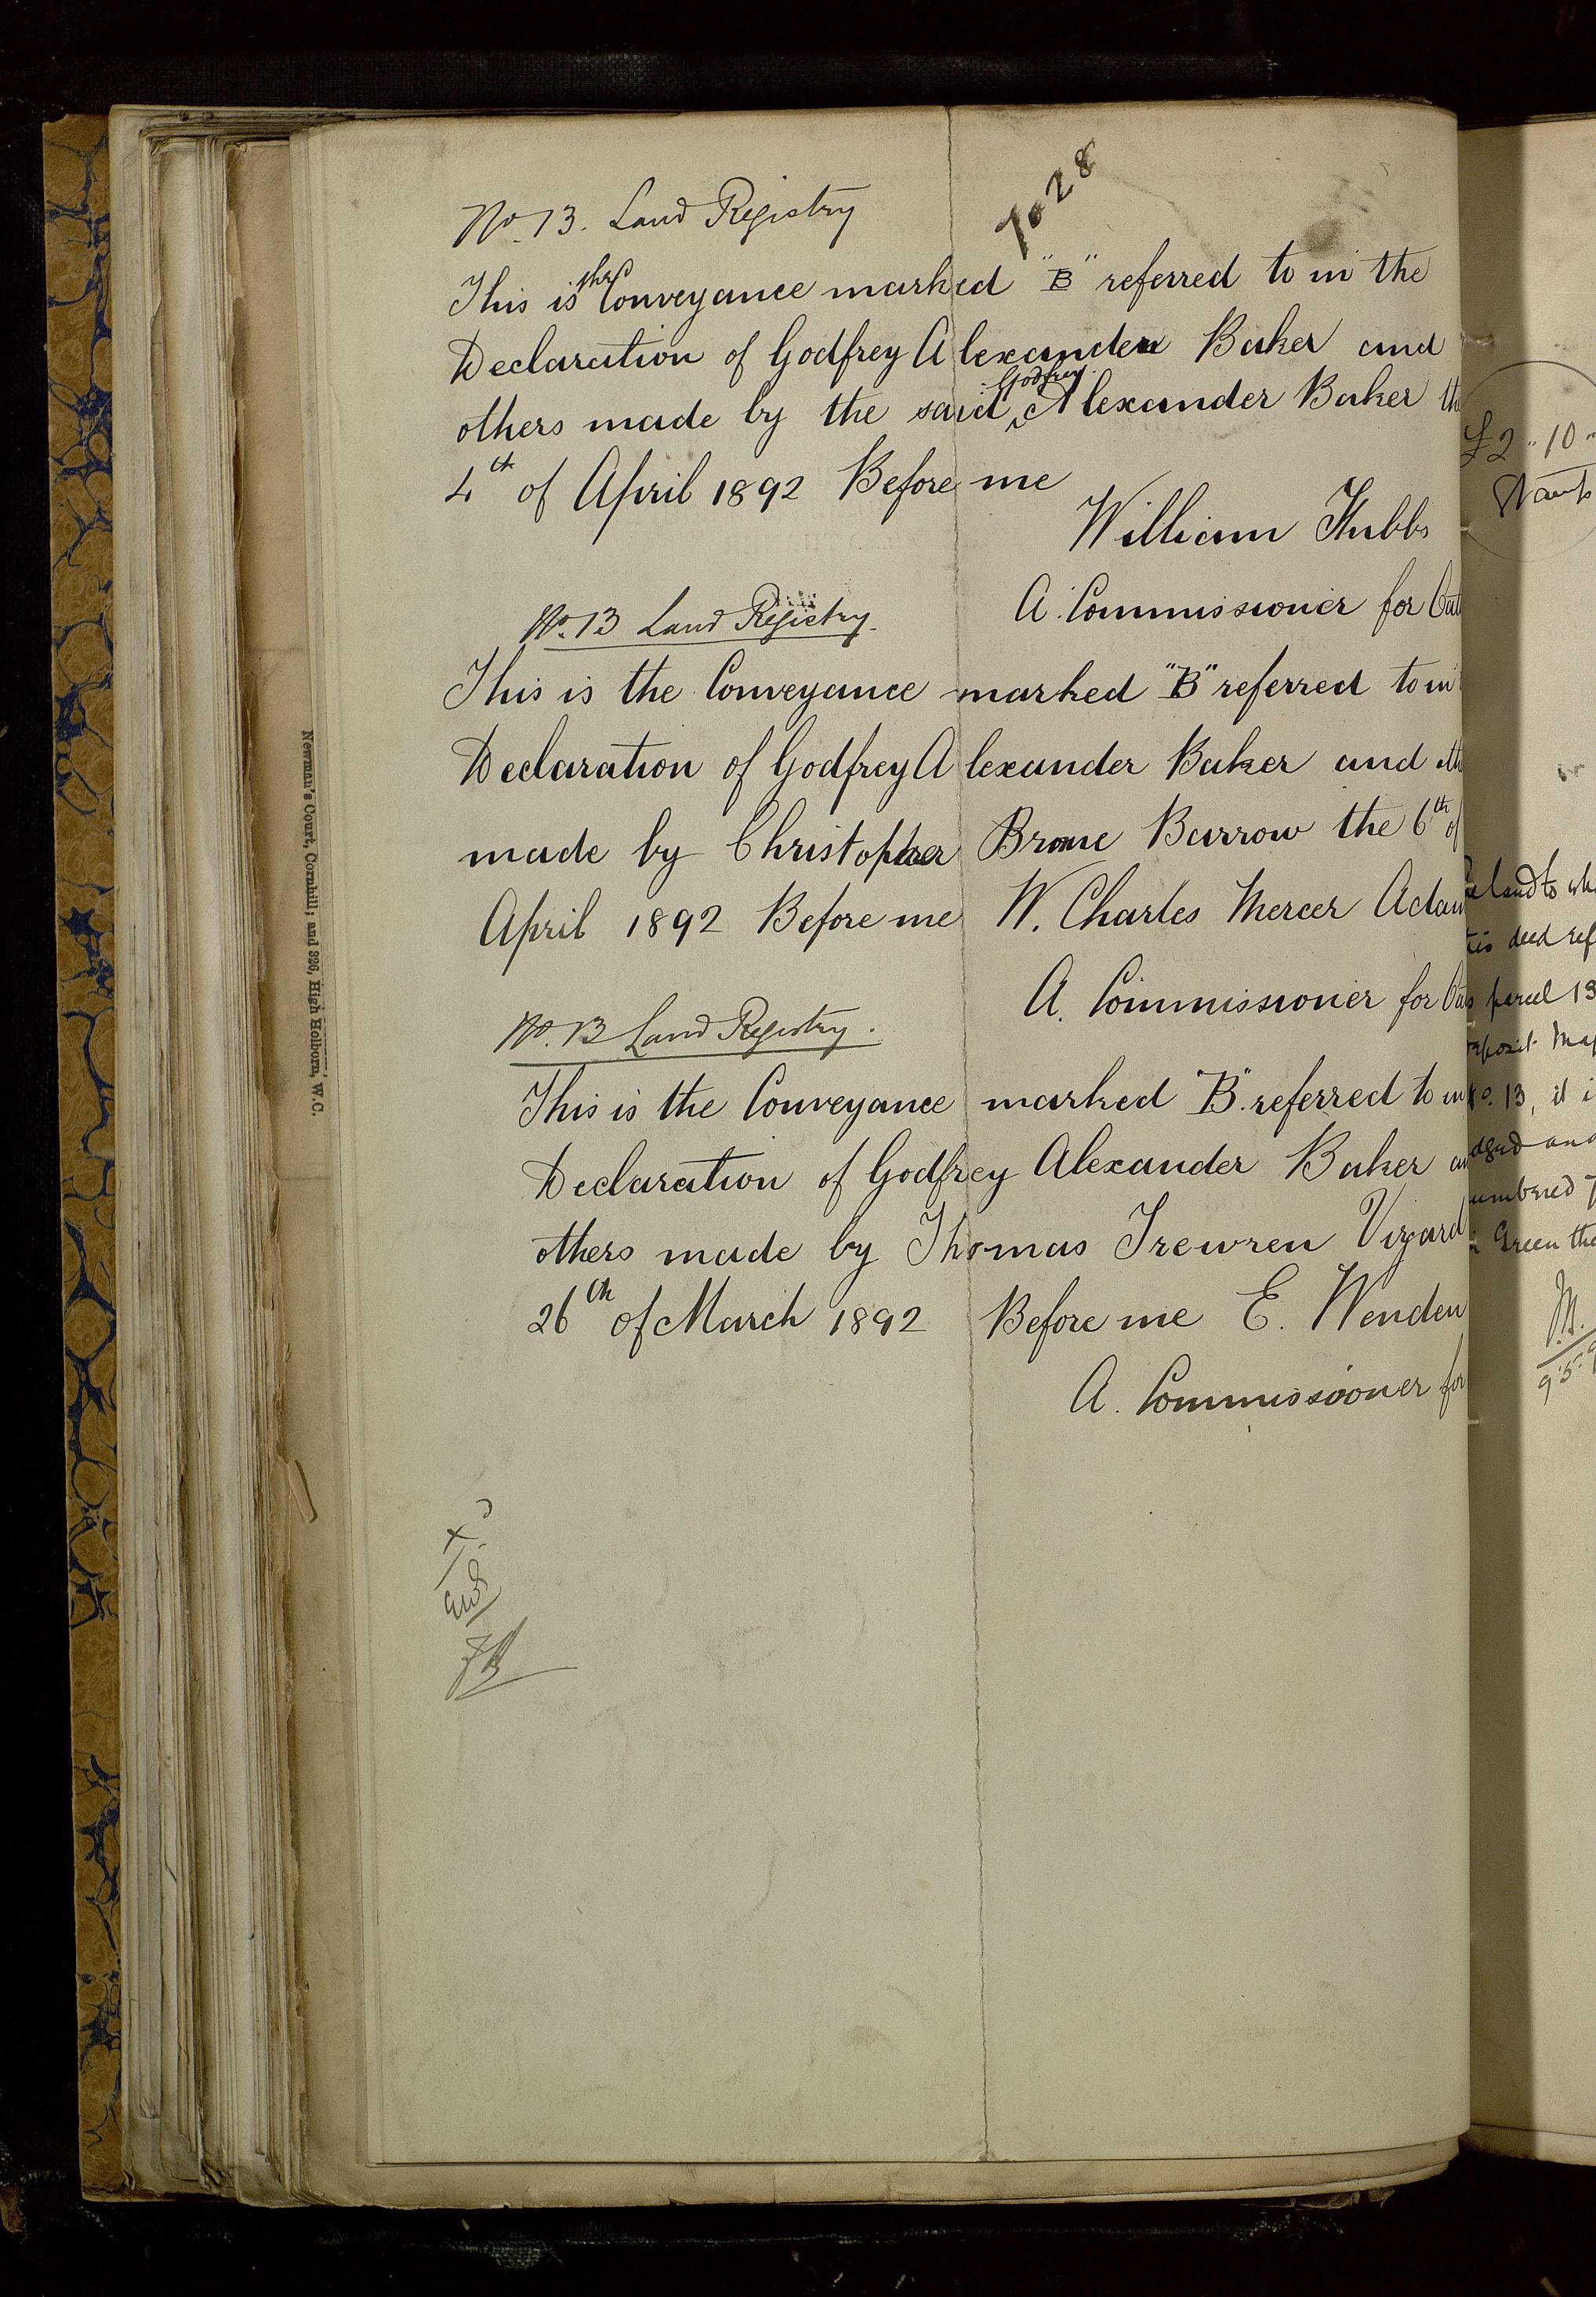 7028
No. 13. Land Registry
This is the Conveyance marked "B" referred to in the
Declaration of Godfrey Alexander Baker and
others made by the said Godfrey Alexander Baker th
4th of April 1892 Before me
William Stubbs
A. Commissioner for Oat
No. 13 Land Registry
This is the Conveyance marked "B" referred to in
Declaration of Godfrey Alexander Baker and oth
made by Christopher Brome Barrow the 6th of
April 1892 Before me W. Charles Mercer Adam
A. Commissioner for Oa
No. 13 Land Registry.
This is the Conveyance marked "B" referred to in
Declaration of Godfrey Alexander Baker an
others made by Thomas Trewren Vizard
26th of March 1892 Before me E. Wenden
A. Commissioner for
Newman's Court, Cornhill; and 326, High Holborn, W.C.
£2 " 10 "
land to wh
deed ref
parcel 13
eposit Map
o. 13, it i
dged and
umbered 7
Green the